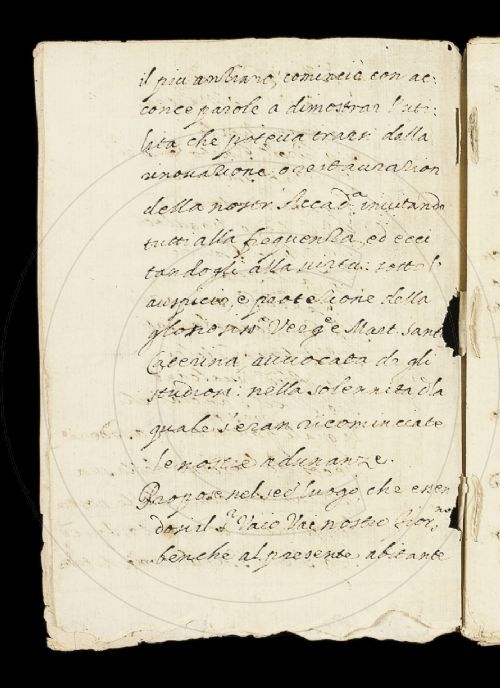 il piu anziano, cominciò con ac:
conce parole a dimostrar l'uti:
lita che poteva trarsi dalla
rinovazione, o restaurazion
della nostr' Accad.ª invitando
tutti alla frequenza, ed ecci
tandogli alla virtù: sotto l'
auspicio, e protezione della
gloriosiss.ª Verg.e e Mart. Santa
Caterina avvocata de gli
studiosi: nella solennità d la
quale s'eran ricominciate
le nostre adunanze.
Propose nel sed.º luogo che essen
dosi il S.r Vaio Vai nostro Gior.no
benche al presente abitante